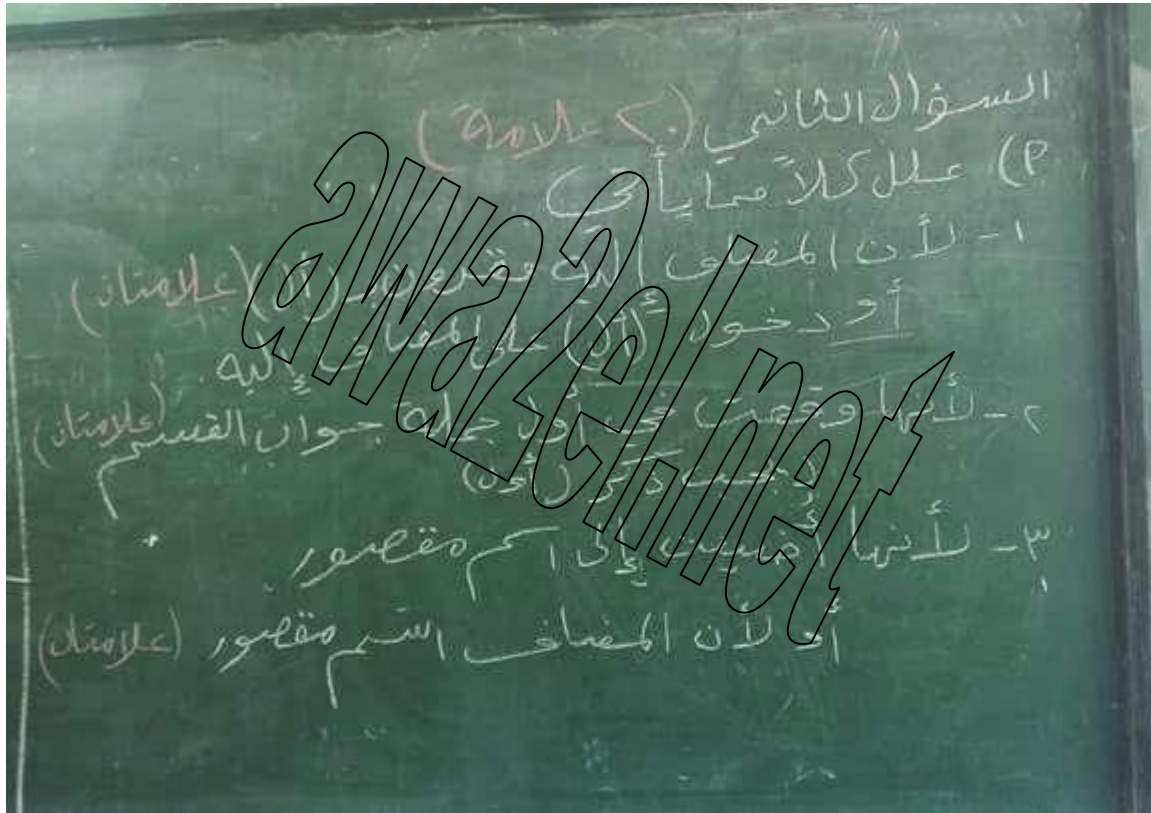 السؤال الثاني (٢٠ علامة)
أ) علل كلاً مما يأتي
١- لأن المضاف إليه مقترن بـ (ال) (علامتان)
أو دخول (ال) على المضاف إليه.
٢- لأنها وقعت في أول جملة جواب القسم (علامتان)
٣- لأنها أضيفت إلى اسم مقصور.
أو لأن المضاف اسم مقصور (علامتان)
awa2el.net